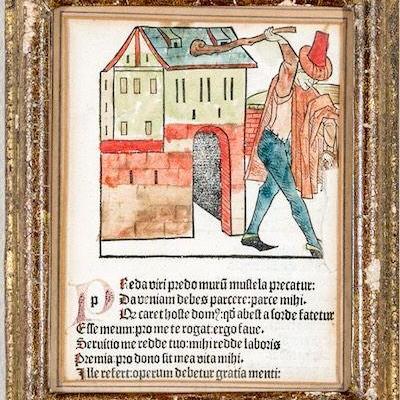 PReda viri predo murū muſtela precatur:
Da veniam debes parcere: parce mihi.
Qꝫ caret hoſte domꝰ: qđ abeſt a ſorde fatetur
Eſſe meum: pro me te rogat: ergo faue.
Seruitio me redde tuo: mihi redde laboris
Premia: pro dono ſit mea vita mihi.
Ille refert: operum debetur gratia menti: